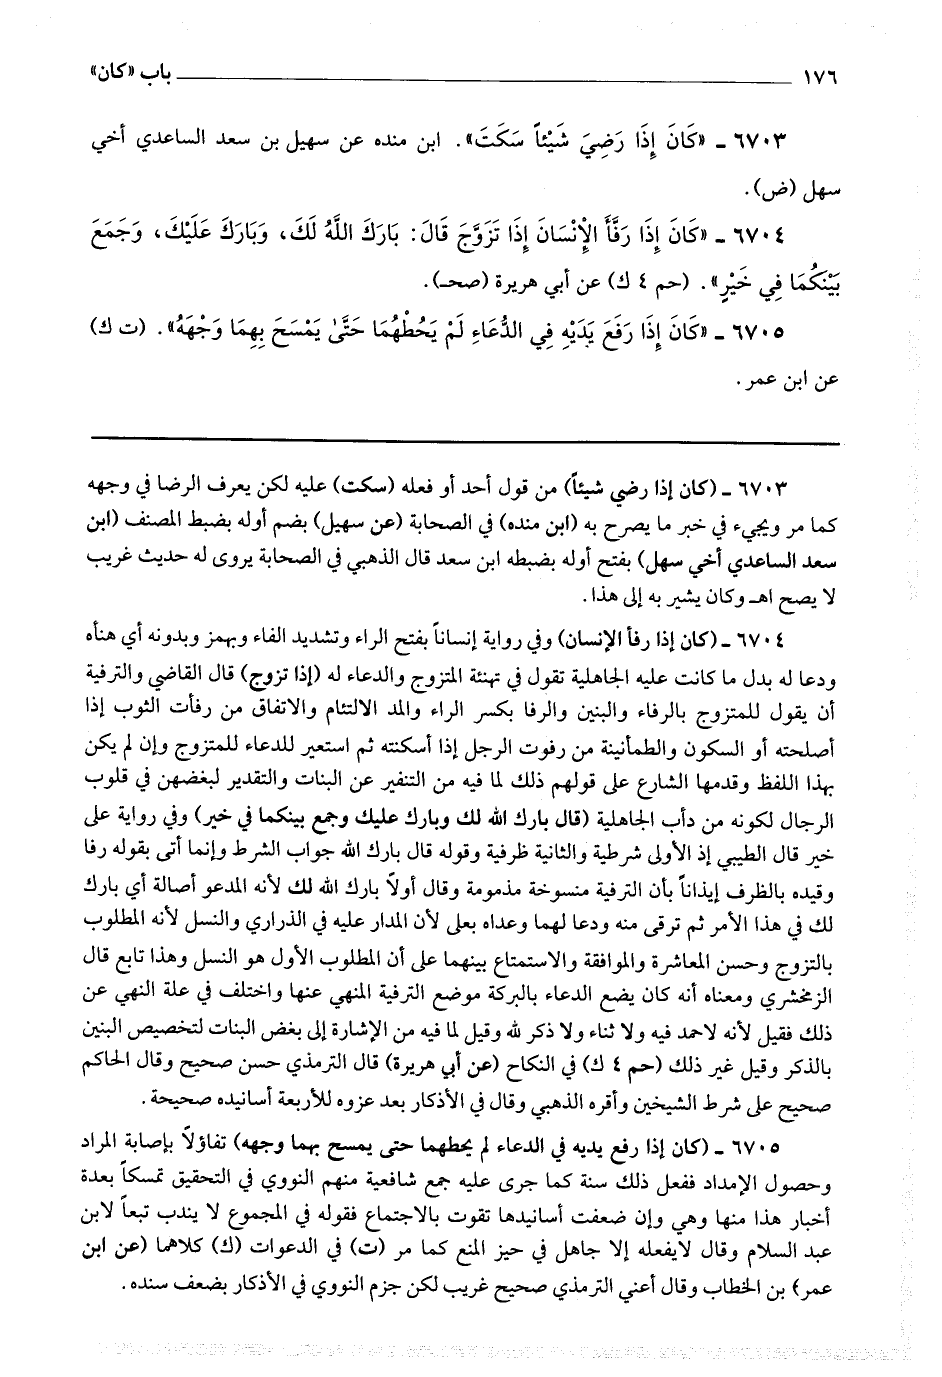 ١٧٦ باب «كان»
٦٧٠٣ ـ «كَانَ إِذَا رَضِيَ شَيْئاً سَكَتَ». ابن منده عن سهيل بن سعد الساعدي أخي
سهل (ض).
٦٧٠٤ ـ «كَانَ إِذَا رَفَّأَ الْإِنْسَانَ إِذَا تَزَوَّجَ قَالَ: بَارَكَ اللَّهُ لَكَ، وَبَارَكَ عَلَيْكَ، وَجَمَعَ
بَيْنَكُمَا فِي خَيْرٍ». (حم ٤ ك) عن أبي هريرة (صحـ).
٦٧٠٥ ـ «كَانَ إِذَا رَفَعَ يَدَيْهِ فِي الدُّعَاءِ لَمْ يَحُطْهُمَا حَتَّى يَمْسَحَ بِهِمَا وَجْهَهُ». (ت ك)
عن ابن عمر.
٦٧٠٣ ـ (كان إذا رضي شيئاً) من قول أحد أو فعله (سكت) عليه لكن يعرف الرضا في وجهه
كما مر ويجيء في خبر ما يصرح به (ابن منده) في الصحابة (عن سهيل) بضم أوله بضبط المصنف (ابن
سعد الساعدي أخي سهل) بفتح أوله بضبطه ابن سعد قال الذهبي في الصحابة يروى له حديث غريب
لا يصح اهـ وكان يشير به إلى هذا.
٦٧٠٤ ـ (كان إذا رفأ الإنسان) وفي رواية إنساناً بفتح الراء وتشديد الفاء وبهمز وبدونه أي هنأه
ودعا له بدل ما كانت عليه الجاهلية تقول في تهنئة المتزوج والدعاء له (إذا تزوج) قال القاضي والترفية
أن يقول للمتزوج بالرفاء والبنين والرفا بكسر الراء والمد الالتئام والاتفاق من رفأت الثوب إذا
أصلحته أو السكون والطمأنينة من رفوت الرجل إذا أسكنته ثم استعير للدعاء للمتزوج وإن لم يكن
بهذا اللفظ وقدمها الشارع على قولهم ذلك لما فيه من التنفير عن البنات والتقدير لبغضهن في قلوب
الرجال لكونه من دأب الجاهلية (قال بارك الله لك وبارك عليك وجمع بينكما في خير) وفي رواية على
خير قال الطيبي إذ الأولى شرطية والثانية ظرفية وقوله قال بارك الله جواب الشرط وإنما أتى بقوله رفا
وقيده بالظرف إيذاناً بأن الترفية منسوخة مذمومة وقال أولاً بارك الله لك لأنه المدعو أصالة أي بارك
لك في هذا الأمر ثم ترقى منه ودعا لهما وعداه بعلى لأن المدار عليه في الذراري والنسل لأنه المطلوب
بالتزوج وحسن المعاشرة والموافقة والاستمتاع بينهما على أن المطلوب الأول هو النسل وهذا تابع قال
الزمخشري ومعناه أنه كان يضع الدعاء بالبركة موضع الترفية المنهي عنها واختلف في علة النهي عن
ذلك فقيل لأنه لاحمد فيه ولا ثناء ولا ذكر لله وقيل لما فيه من الإشارة إلى بغض البنات لتخصيص البنين
بالذكر وقيل غير ذلك (حم ٤ ك) في النكاح (عن أبي هريرة) قال الترمذي حسن صحيح وقال الحاكم
صحيح على شرط الشيخين وأقره الذهبي وقال في الأذكار بعد عزوه للأربعة أسانيده صحيحة.
٦٧٠٥ ـ (كان إذا رفع يديه في الدعاء لم يحطهما حتى يمسح بهما وجهه) تفاؤلاً بإصابة المراد
وحصول الإمداد ففعل ذلك سنة كما جرى عليه جمع شافعية منهم النووي في التحقيق تمسكاً بعدة
أخبار هذا منها وهي وإن ضعفت أسانيدها تقوت بالاجتماع فقوله في المجموع لا يندب تبعاً لابن
عبد السلام وقال لايفعله إلا جاهل في حيز المنع كما مر (ت) في الدعوات (ك) كلاهما (عن ابن
عمر) بن الخطاب وقال أعني الترمذي صحيح غريب لكن جزم النووي في الأذكار بضعف سنده.